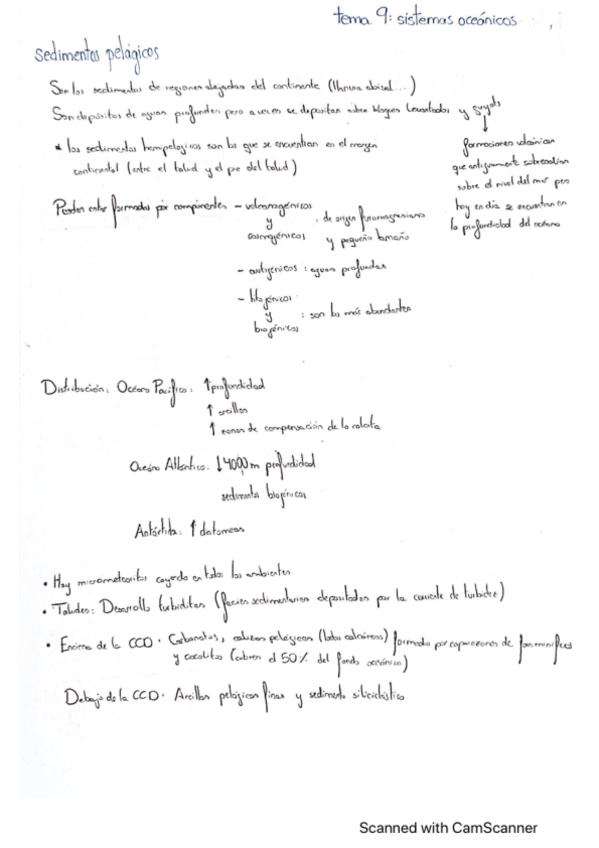 tema 9: sistemas oceánicos
Sedimentos pelágicos
Son los sedimentos de regiones alejadas del continente (llanura abisal...)
Son depósitos de aguas profundas pero a veces se depositan sobre bloques levantados y guyots
* los sedimentos hemipelágicos son los que se encuentran en el margen
continental (entre el talud y el pie del talud)
formaciones volcánicas
que antiguamente sobresalían
sobre el nivel del mar pero
hoy en día se encuentran en
la profundidad del océano
Pueden estar formados por componentes - volcanogénicos
y
cosmogénicos
: de origen
y pequeño tamaño
- autigénicos : aguas profundas
- litogénicos
y
biogénicos
: son los más abundantes
Distribución: Océano Pacífico: ↑ profundidad
↑ arcillas
↑ zonas de compensación de la calcita
Océano Atlántico: ↓ 4000 m profundidad
sedimentos biogénicos
Antártida: ↑ diatomeas
• Hay micrometeoritos cayendo en todos los ambientes
• Taludes: Desarrollo turbiditas (facies sedimentarias depositadas por la corriente de turbidez)
• Encima de la CCD: Carbonatos, calizas pelágicas (lodos calcáreos) formados por caparazones de foraminíferos
y cocolitos (cubren el 50% del fondo oceánico)
Debajo de la CCD: Arcillas pelágicas finas y sedimento siliciclástico
Scanned with CamScanner